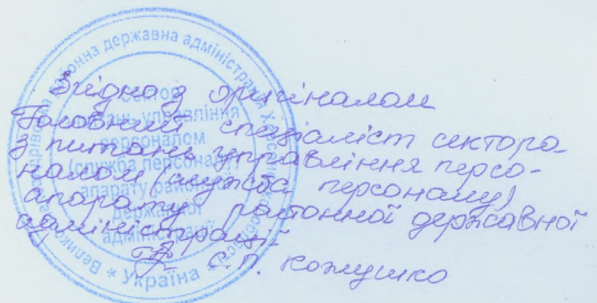 Згідно з оригіналом
Головний спеціаліст сектора
з питань управління персо-
налом (служба персоналу)
апарату районної державної
адміністрації
Кожушко
районна державна адміністрація
Сектор
з питань управління
персоналом
(служба персоналу)
апарату районної
державної
адміністрації
* Україна *